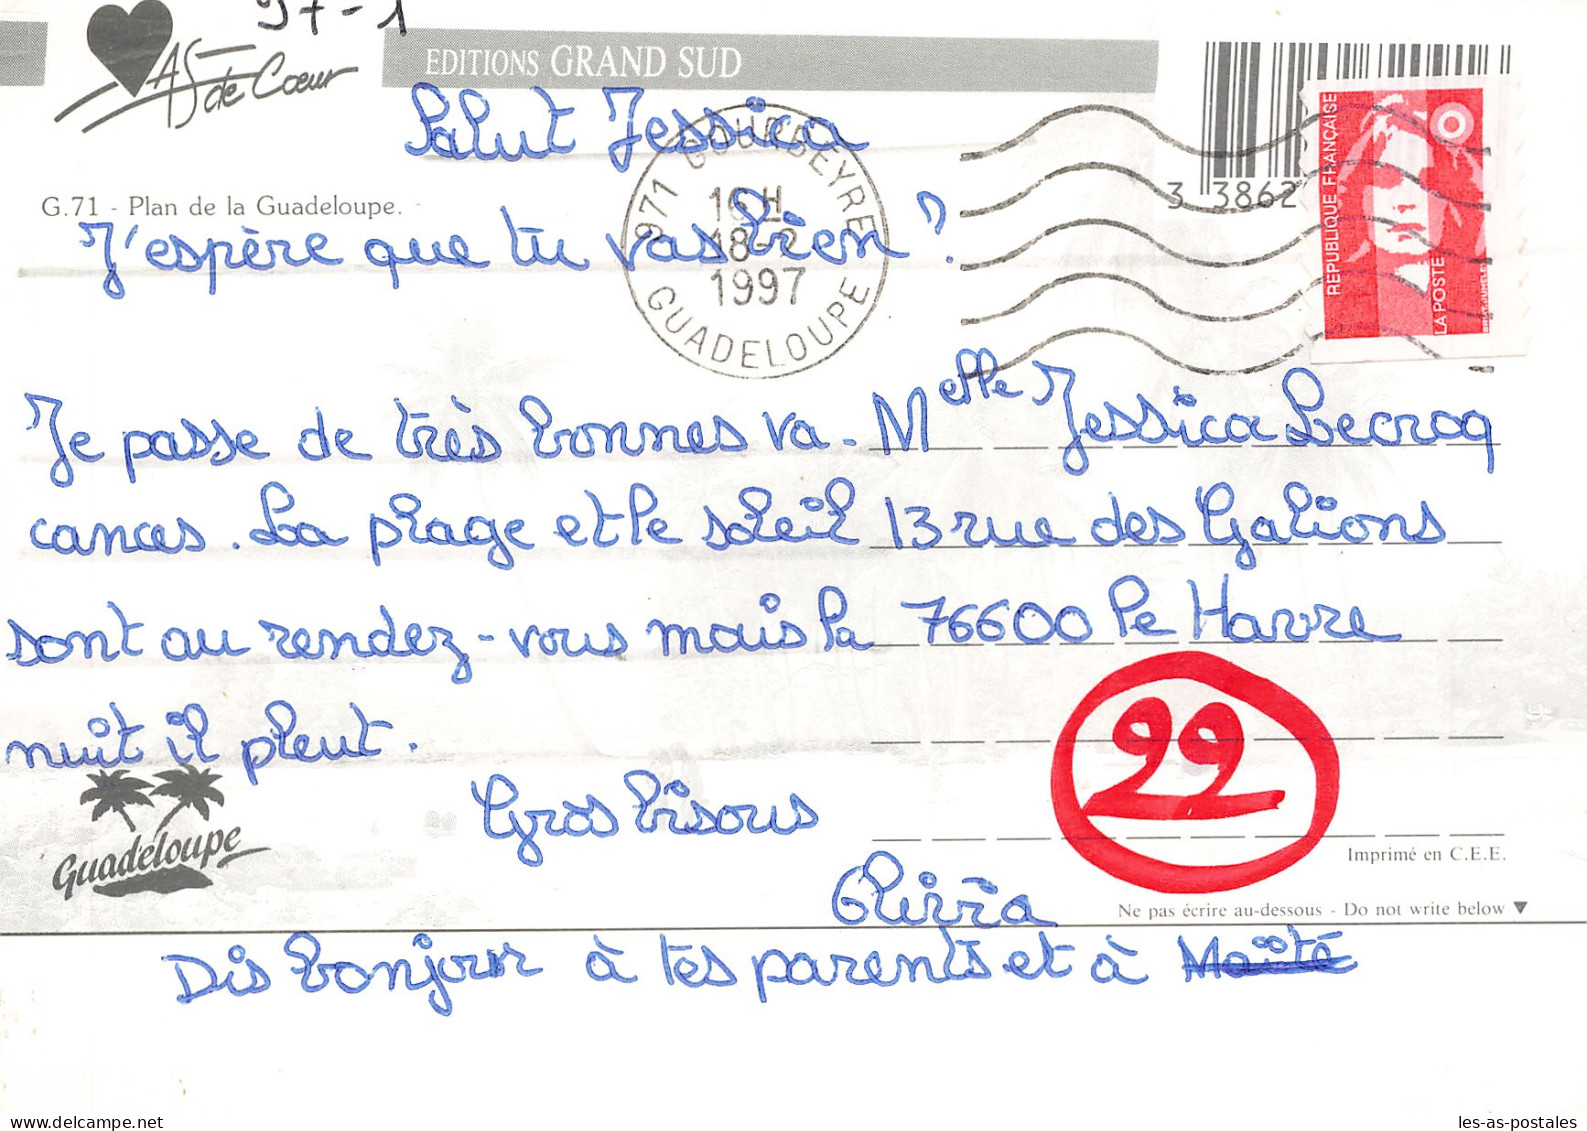 97-1
As de Cœur
EDITIONS GRAND SUD
Salut Jessica
G.71 - Plan de la Guadeloupe.
J'espère que tu vas bien ?
971 GOURBEYRE
16 H
18-2
1997
GUADELOUPE
3 3862
REPUBLIQUE FRANÇAISE
LA POSTE
Je passe de très bonnes va-
cances. La plage et le soleil
sont au rendez-vous mais la
nuit il pleut.
Gros bisous
Dis bonjour à tes parents et à Maïté
Melle Jessica Lecroq
13 rue des Galions
76600 Le Havre
22
Guadeloupe
Imprimé en C.E.E.
Ne pas écrire au-dessous - Do not write below ▼
les-as-postales